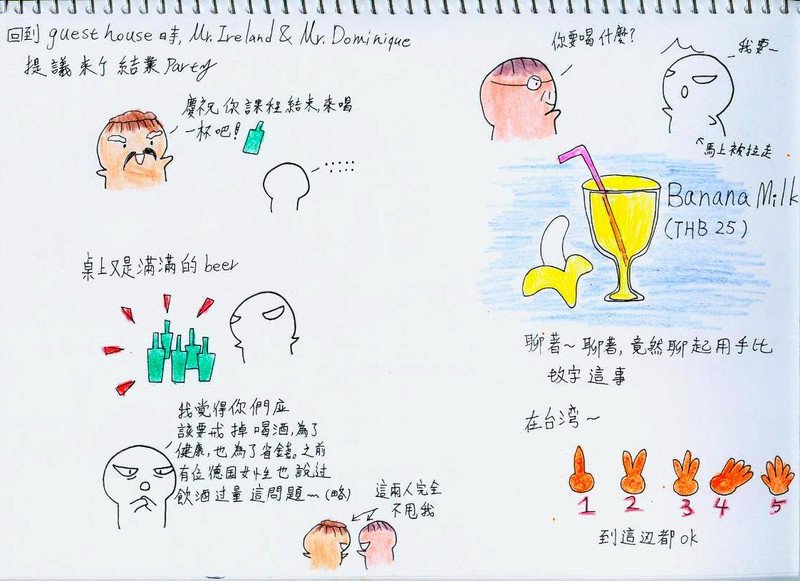 回到 guest house 時, Mr. Ireland & Mr. Dominique
提議來个結業 Party
慶祝你課程結束,來喝
一杯吧!
桌上又是滿滿的 beer
我覺得你們应
該要戒掉喝酒,為了
健康,也為了省錢。之前
有位德国女性也說过
飲酒过量這問題~(略)
這兩人完全
不甩我
你要喝什麼?
我要~
馬上被拉走
Banana Milk
(THB 25)
聊著~聊著,竟然聊起用手比
数字這事
在台湾~
1 2 3 4 5
到這边都ok